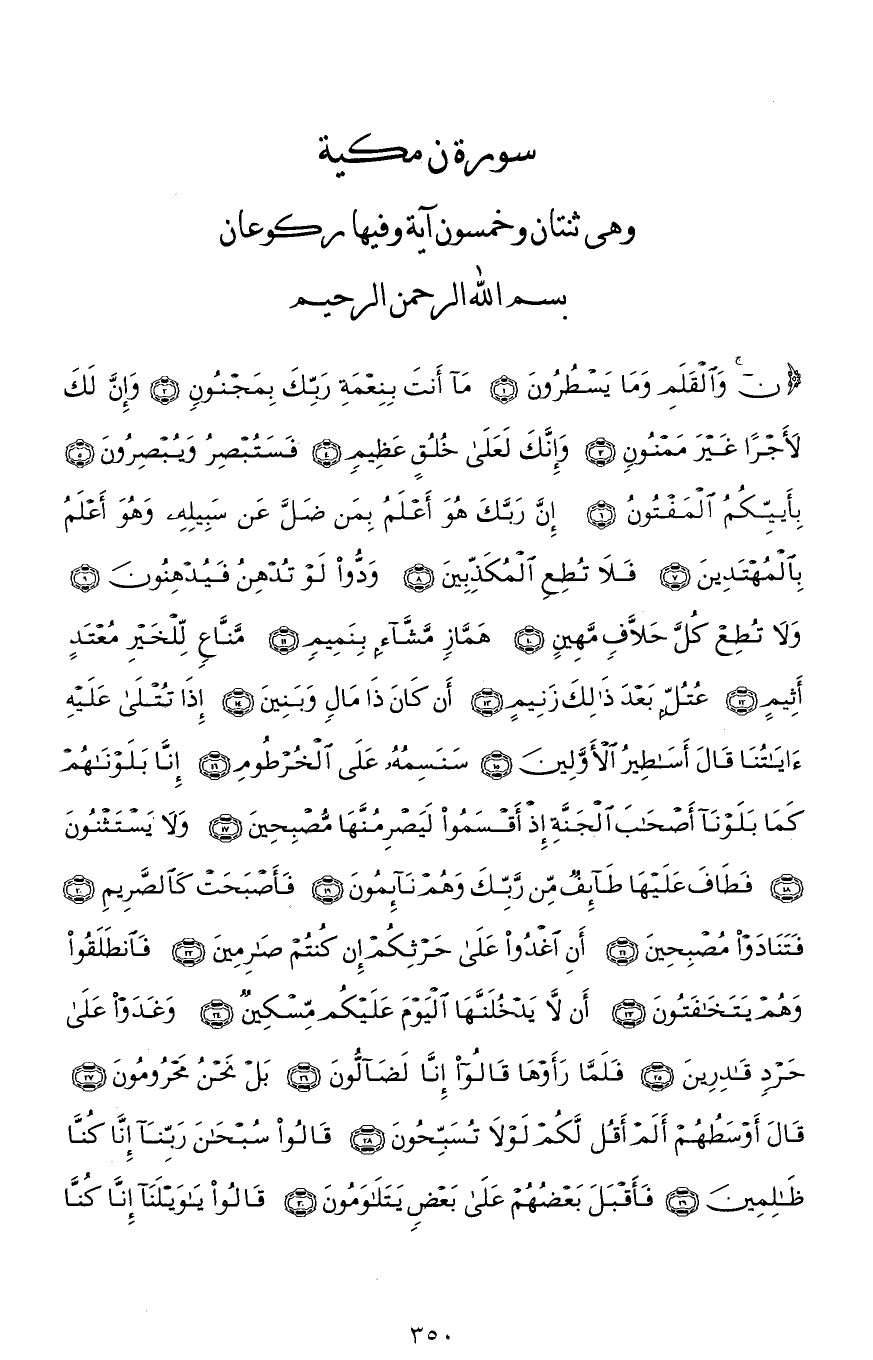 سورة ن مكية
وهى ثنتان وخمسون آية وفيها ركوعان
بسم الله الرحمن الرحيم
﴿نٓ ۚ وَٱلْقَلَمِ وَمَا يَسْطُرُونَ ١ مَآ أَنتَ بِنِعْمَةِ رَبِّكَ بِمَجْنُونٍ ٢ وَإِنَّ لَكَ
لَأَجْرًا غَيْرَ مَمْنُونٍ ٣ وَإِنَّكَ لَعَلَىٰ خُلُقٍ عَظِيمٍ ٤ فَسَتُبْصِرُ وَيُبْصِرُونَ ٥
بِأَييِّكُمُ ٱلْمَفْتُونُ ٦ إِنَّ رَبَّكَ هُوَ أَعْلَمُ بِمَن ضَلَّ عَن سَبِيلِهِۦ وَهُوَ أَعْلَمُ
بِٱلْمُهْتَدِينَ ٧ فَلَا تُطِعِ ٱلْمُكَذِّبِينَ ٨ وَدُّوا۟ لَوْ تُدْهِنُ فَيُدْهِنُونَ ٩
وَلَا تُطِعْ كُلَّ حَلَّافٍ مَّهِينٍ ١٠ هَمَّازٍ مَّشَّآءٍ بِنَمِيمٍ ١١ مَّنَّاعٍ لِّلْخَيْرِ مُعْتَدٍ
أَثِيمٍ ١٢ عُتُلٍّ بَعْدَ ذَٰلِكَ زَنِيمٍ ١٣ أَن كَانَ ذَا مَالٍ وَبَنِينَ ١٤ إِذَا تُتْلَىٰ عَلَيْهِ
ءَايَٰتُنَا قَالَ أَسَٰطِيرُ ٱلْأَوَّلِينَ ١٥ سَنَسِمُهُۥ عَلَى ٱلْخُرْطُومِ ١٦ إِنَّا بَلَوْنَٰهُمْ
كَمَا بَلَوْنَآ أَصْحَٰبَ ٱلْجَنَّةِ إِذْ أَقْسَمُوا۟ لَيَصْرِمُنَّهَا مُصْبِحِينَ ١٧ وَلَا يَسْتَثْنُونَ
١٨ فَطَافَ عَلَيْهَا طَآئِفٌ مِّن رَّبِّكَ وَهُمْ نَآئِمُونَ ١٩ فَأَصْبَحَتْ كَٱلصَّرِيمِ ٢٠
فَتَنَادَوْا۟ مُصْبِحِينَ ٢١ أَنِ ٱغْدُوا۟ عَلَىٰ حَرْثِكُمْ إِن كُنتُمْ صَٰرِمِينَ ٢٢ فَٱنطَلَقُوا۟
وَهُمْ يَتَخَٰفَتُونَ ٢٣ أَن لَّا يَدْخُلَنَّهَا ٱلْيَوْمَ عَلَيْكُم مِّسْكِينٌ ٢٤ وَغَدَوْا۟ عَلَىٰ
حَرْدٍ قَٰدِرِينَ ٢٥ فَلَمَّا رَأَوْهَا قَالُوٓا۟ إِنَّا لَضَآلُّونَ ٢٦ بَلْ نَحْنُ مَحْرُومُونَ ٢٧
قَالَ أَوْسَطُهُمْ أَلَمْ أَقُل لَّكُمْ لَوْلَا تُسَبِّحُونَ ٢٨ قَالُوا۟ سُبْحَٰنَ رَبِّنَآ إِنَّا كُنَّا
ظَٰلِمِينَ ٢٩ فَأَقْبَلَ بَعْضُهُمْ عَلَىٰ بَعْضٍ يَتَلَٰوَمُونَ ٣٠ قَالُوا۟ يَٰوَيْلَنَآ إِنَّا كُنَّا
٣٥٠